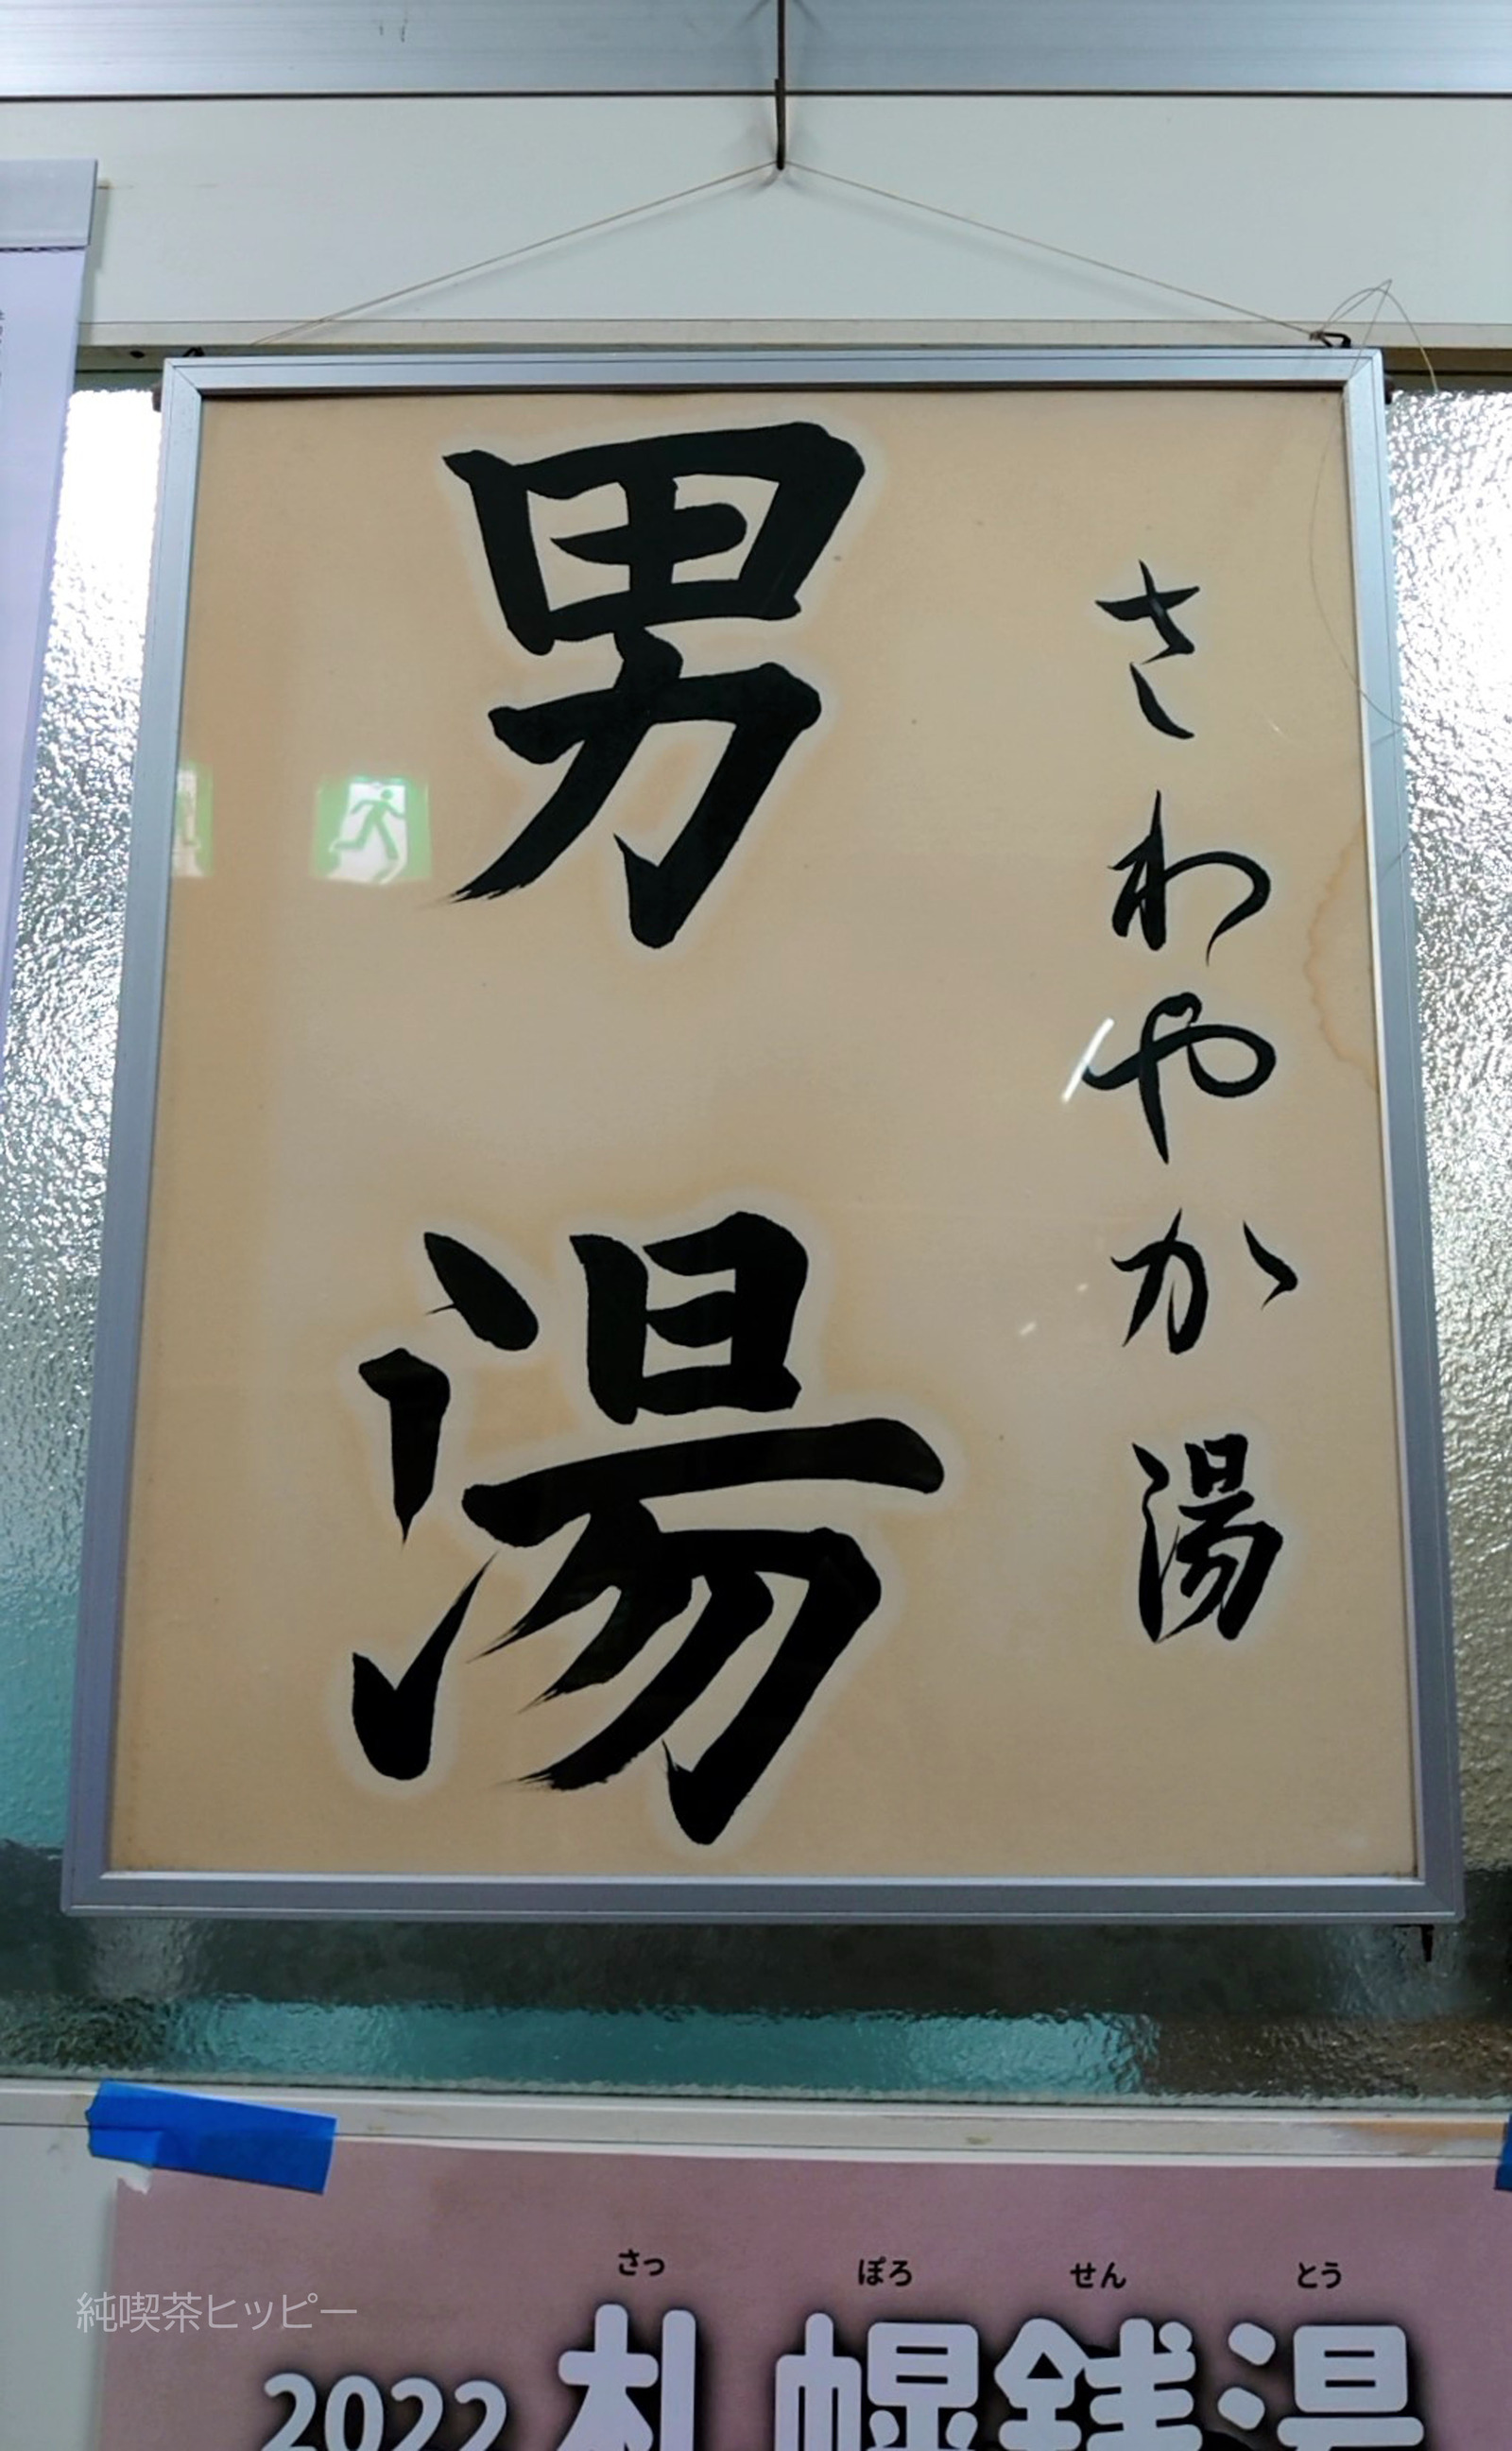 さわやか湯
男湯
さっ ぽろ せん とう
2022 札幌銭湯
純喫茶ヒッピー